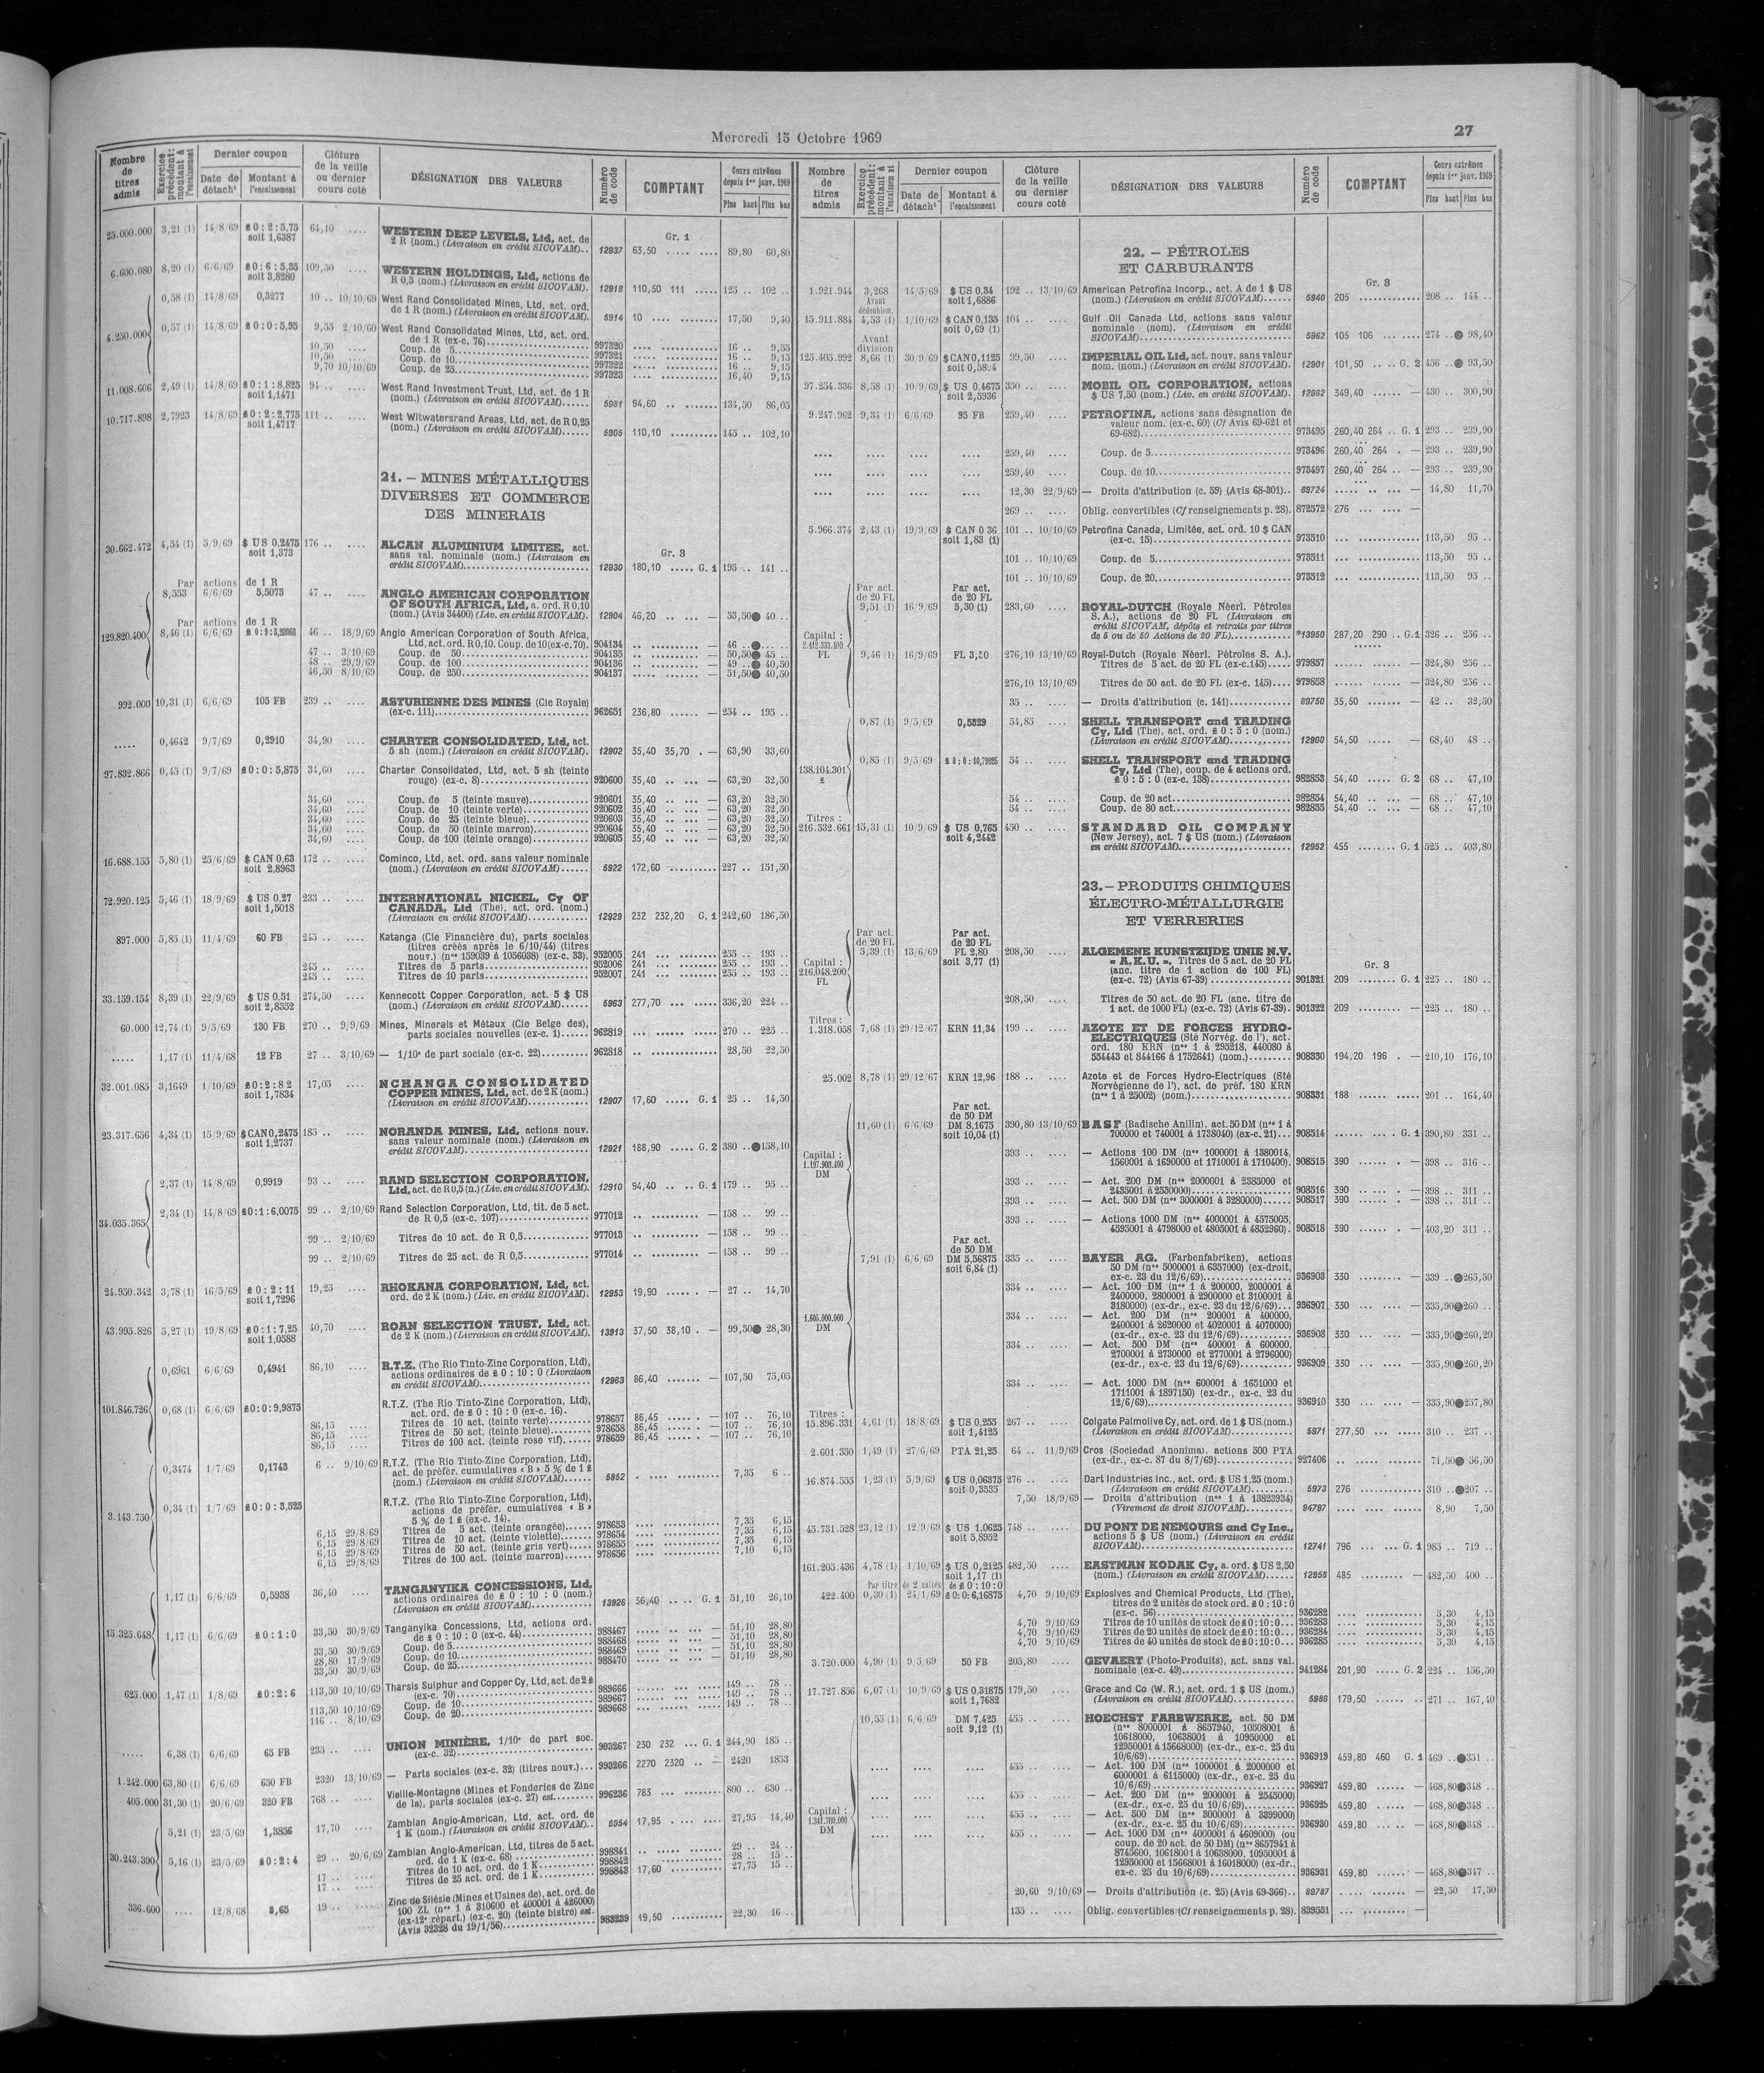 Mercredi 15 Octobre 1969
27
Nombre de titres admis
Exercice précédent : montant à l'encaissement
Dernier coupon
Date de détach¹
Montant à l'encaissement
Clôture de la veille ou dernier cours coté
DÉSIGNATION DES VALEURS
Numéro de code
COMPTANT
Cours extrêmes depuis 1er janv. 1969
Plus haut
Plus bas
Gr. 1
25.000.000 3,21 (1) 14/8/69 £ 0 : 2 : 5,75 64,10 .... WESTERN DEEP LEVELS, Ltd, act. de
soit 1,6387 2 R (nom.) (Livraison en crédit SICOVAM).. 12937 63,50 ..... .... 89,80 60,80
6.600.080 8,20 (1) 6/6/69 £ 0 : 6 : 5,35 109,50 .... WESTERN HOLDINGS, Ltd, actions de
soit 3,8280 R 0,5 (nom.) (Livraison en crédit SICOVAM). 12918 110,50 111 ..... 125 .. 102 ..
0,58 (1) 14/8/69 0,3277 10 .. 10/10/69 West Rand Consolidated Mines, Ltd, act. ord.
de 1 R (nom.) (Livraison en crédit SICOVAM). 5914 10 17,50 9,40
4.250.000 0,57 (1) 14/8/69 £ 0 : 0 : 5,95 9,55 2/10/60 West Rand Consolidated Mines, Ltd, act. ord.
de 1 R (ex-c. 76) 997320 16 .. 9,55
10,50 .... Coup. de 5 997321 16 .. 9,15
10,50 .... Coup. de 10 997322 16 .. 9,15
9,70 10/10/69 Coup. de 25 997323 16,40 9,15
11.008.606 2,49 (1) 14/8/69 £ 0 : 1 : 8,825 94 .. .... West Rand Investment Trust, Ltd, act. de 1 R
soit 1,1471 (nom.) (Livraison en crédit SICOVAM)...... 5981 94,60 134,50 86,05
10.717.898 2,7923 14/8/69 £ 0 : 2 : 2,775 111 .. .... West Witwatersrand Areas, Ltd, act. de R 0,25
soit 1,4717 (nom.) (Livraison en crédit SICOVAM)...... 5905 110,10 145 .. 102,10
21. – MINES MÉTALLIQUES
DIVERSES ET COMMERCE
DES MINERAIS
Gr. 3
30.662.472 4,54 (1) 5/9/69 $ US 0,2475 176 .. .... ALCAN ALUMINIUM LIMITEE, act.
soit 1,373 sans val. nominale (nom.) (Livraison en
crédit SICOVAM) 12930 180,10 ..... G. 1 195 .. 141 ..
Par actions de 1 R
8,553 6/6/69 5,5073 47 .. .... ANGLO AMERICAN CORPORATION
OF SOUTH AFRICA, Ltd, a. ord. R 0,10
(nom.) (Avis 34400) (Liv. en crédit SICOVAM). 12904 46,20 — 53,50 ● 40 ..
Par actions de 1 R
129.820.400 8,46 (1) 6/6/69 46 .. 18/9/69 Anglo American Corporation of South Africa,
Ltd, act. ord. R 0,10. Coup. de 10 (ex-c. 70). 904134 — 46 .. ●
47 .. 3/10/69 Coup. de 50 904135 — 50,50 ● 45 ..
48 .. 29/9/69 Coup. de 100 904136 — 49 .. ● 40,50
46,50 8/10/69 Coup. de 250 904137 — 51,50 ● 40,50
992.000 10,31 (1) 6/6/69 105 FB 239 .. .... ASTURIENNE DES MINES (Cie Royale)
(ex-c. 111) 962651 236,80 — 254 .. 195 ..
..... 0,4642 9/7/69 0,2910 34,90 .... CHARTER CONSOLIDATED, Ltd, act.
5 sh (nom.) (Livraison en crédit SICOVAM). 12902 35,40 35,70 . — 63,90 33,60
97.832.866 0,45 (1) 9/7/69 £ 0 : 0 : 5,875 34,60 .... Charter Consolidated, Ltd, act. 5 sh (teinte
rouge) (ex-c. 8) 920600 35,40 — 63,20 32,50
34,60 .... Coup. de 5 (teinte mauve) 920601 35,40 — 63,20 32,50
34,60 .... Coup. de 10 (teinte verte) 920602 35,40 — 63,20 32,50
34,60 .... Coup. de 25 (teinte bleue) 920603 35,40 — 63,20 32,50
34,60 .... Coup. de 50 (teinte marron) 920604 35,40 — 63,20 32,50
34,60 .... Coup. de 100 (teinte orange) 920605 35,40 — 63,20 32,50
16.688.155 5,80 (1) 25/6/69 $ CAN 0,63 172 .. .... Cominco, Ltd, act. ord. sans valeur nominale
soit 2,8963 (nom.) (Livraison en crédit SICOVAM)...... 5922 172,60 227 .. 151,50
72.920.125 5,46 (1) 18/9/69 $ US 0,27 233 .. .... INTERNATIONAL NICKEL, Cy OF
soit 1,5018 CANADA, Ltd (The), act. ord. (nom.)
(Livraison en crédit SICOVAM) 12929 232 232,20 G. 1 242,60 186,50
897.000 5,85 (1) 11/4/69 60 FB 245 .. .... Katanga (Cie Financière du), parts sociales
(titres créés après le 6/10/44) (titres
nouv.) (nos 159039 à 1056038) (ex-c. 33). 952005 241 255 .. 193 ..
245 .. .... Titres de 5 parts 952006 241 255 .. 193 ..
245 .. .... Titres de 10 parts 952007 241 255 .. 193 ..
33.159.154 8,39 (1) 22/9/69 $ US 0,51 274,50 .... Kennecott Copper Corporation, act. 5 $ US
soit 2,8352 (nom.) (Livraison en crédit SICOVAM)...... 5963 277,70 336,20 224 ..
60.000 12,74 (1) 9/5/69 130 FB 270 .. 9/9/69 Mines, Minerais et Métaux (Cie Belge des),
parts sociales nouvelles (ex-c. 1) 962819 270 .. 225 ..
..... 1,17 (1) 11/4/68 12 FB 27 .. 3/10/69 — 1/10e de part sociale (ex-c. 22) 962818 28,50 22,50
32.001.085 3,1649 1/10/69 £ 0 : 2 : 8 2 17,05 .... NCHANGA CONSOLIDATED
soit 1,7834 COPPER MINES, Ltd, act. de 2 K (nom.)
(Livraison en crédit SICOVAM) 12907 17,60 ..... G. 1 25 .. 14,50
23.317.656 4,34 (1) 15/9/69 $ CAN 0,2475 185 .. .... NORANDA MINES, Ltd, actions nouv.
soit 1,2737 sans valeur nominale (nom.) (Livraison en
crédit SICOVAM) 12921 188,90 ..... G. 2 380 .. ● 158,10
2,37 (1) 14/8/69 0,9919 93 .. .... RAND SELECTION CORPORATION,
Ltd, act. de R 0,5 (n.) (Liv. en crédit SICOVAM). 12910 94,40 .. .. G. 1 179 .. 95 ..
34.035.365 2,34 (1) 14/8/69 £ 0 : 1 : 6,0075 99 .. 2/10/69 Rand Selection Corporation, Ltd, tit. de 5 act.
de R 0,5 (ex-c. 107) 977012 — 158 .. 99 ..
99 .. 2/10/69 Titres de 10 act. de R 0,5 977013 — 158 .. 99 ..
99 .. 2/10/69 Titres de 25 act. de R 0,5 977014 — 158 .. 99 ..
24.950.342 3,78 (1) 16/5/69 £ 0 : 2 : 11 19,25 .... RHOKANA CORPORATION, Ltd, act.
soit 1,7296 ord. de 2 K (nom.) (Liv. en crédit SICOVAM). 12953 19,90 — 27 .. 14,70
43.995.826 5,27 (1) 19/8/69 £ 0 : 1 : 7,25 40,70 .... ROAN SELECTION TRUST, Ltd, act.
soit 1,0588 de 2 K (nom.) (Livraison en crédit SICOVAM). 13913 37,50 38,10 . — 99,50 ● 28,30
0,6961 6/6/69 0,4941 86,10 .... R.T.Z. (The Rio Tinto-Zinc Corporation, Ltd),
actions ordinaires de £ 0 : 10 : 0 (Livraison
en crédit SICOVAM) 12963 86,40 — 107,50 75,05
101.846.726 0,68 (1) 6/6/69 £ 0 : 0 : 9,9875 R.T.Z. (The Rio Tinto-Zinc Corporation, Ltd),
act. ord. de £ 0 : 10 : 0 (ex-c. 16).
86,15 .... Titres de 10 act. (teinte verte) 978657 86,45 — 107 .. 76,10
86,15 .... Titres de 50 act. (teinte bleue) 978658 86,45 — 107 .. 76,10
86,15 .... Titres de 100 act. (teinte rose vif) 978659 86,45 — 107 .. 76,10
0,3474 1/7/69 0,1743 6 .. 9/10/69 R.T.Z. (The Rio Tinto-Zinc Corporation, Ltd),
act. de préfér. cumulatives « B » 5 % de 1 £
(nom.) (Livraison en crédit SICOVAM) 5952 7,35 6 ..
3.143.750 0,34 (1) 1/7/69 £ 0 : 0 : 3,525 R.T.Z. (The Rio Tinto-Zinc Corporation, Ltd),
actions de préfér. cumulatives « B »
5 % de 1 £ (ex-c. 14).
6,15 29/8/69 Titres de 5 act. (teinte orangée) 978653 7,35 6,15
6,15 29/8/69 Titres de 10 act. (teinte violette) 978654 7,35 6,15
6,15 29/8/69 Titres de 50 act. (teinte gris vert) 978655 7,35 6,15
6,15 29/8/69 Titres de 100 act. (teinte marron) 978656 7,10 6,15
1,17 (1) 6/6/69 0,5938 36,40 .... TANGANYIKA CONCESSIONS, Ltd,
actions ordinaires de £ 0 : 10 : 0 (nom.)
(Livraison en crédit SICOVAM) 13926 36,40 .. .. G. 1 51,10 26,10
15.325.648 1,17 (1) 6/6/69 £ 0 : 1 : 0 33,50 30/9/69 Tanganyika Concessions, Ltd, actions ord.
de £ 0 : 10 : 0 (ex-c. 44) 988467 — 51,10 28,80
33,50 30/9/69 Coup. de 5 988468 — 51,10 28,80
28,80 17/9/69 Coup. de 10 988469 — 51,10 28,80
33,50 30/9/69 Coup. de 25 988470 — 51,10 28,80
625.000 1,47 (1) 1/8/69 £ 0 : 2 : 6 113,50 10/10/69 Tharsis Sulphur and Copper Cy, Ltd, act. de 2 £
(ex-c. 70) 989666 149 .. 78 ..
113,50 10/10/69 Coup. de 10 989667 149 .. 78 ..
116 .. 8/10/69 Coup. de 20 989668 149 .. 78 ..
..... 6,38 (1) 6/6/69 65 FB 235 .. .... UNION MINIÈRE, 1/10e de part soc.
(ex-c. 32) 993267 230 232 ... G. 1 244,90 185 ..
1.242.000 63,80 (1) 6/6/69 650 FB 2320 13/10/69 — Parts sociales (ex-c. 32) (titres nouv.) 993266 2270 2320 .. — 2420 1853
405.000 31,30 (1) 20/6/69 320 FB 768 .. .... Vieille-Montagne (Mines et Fonderies de Zinc
de la), parts sociales (ex-c. 27) est. 996236 783 800 .. 630 ..
5,21 (1) 23/5/69 1,3856 17,70 .... Zambian Anglo-American, Ltd, act. ord. de
1 K (nom.) (Livraison en crédit SICOVAM) 5954 17,95 27,95 14,40
30.243.390 5,16 (1) 23/5/69 £ 0 : 2 : 4 29 .. 20/6/69 Zambian Anglo-American, Ltd, titres de 5 act.
ord. de 1 K (ex-c. 68) 998841 29 .. 24 ..
17 .. .... Titres de 10 act. ord. de 1 K 998842 28 .. 15 ..
17 .. .... Titres de 25 act. ord. de 1 K 998843 17,60 27,75 15 ..
336.600 .... 12/8/68 3,65 19 .. .... Zinc de Silésie (Mines et Usines de), act. ord. de
100 ZL (nos 1 à 310600 et 400001 à 426000)
(ex-12e répart.) (ex-c. 20) (teinte bistre) est.
(Avis 32328 du 19/1/56) 983239 19,50 22,30 16 ..
Nombre de titres admis
Exercice précédent : montant à l'encaissement
Dernier coupon
Date de détach¹
Montant à l'encaissement
Clôture de la veille ou dernier cours coté
DÉSIGNATION DES VALEURS
Numéro de code
COMPTANT
Cours extrêmes depuis 1er janv. 1969
Plus haut
Plus bas
22. – PÉTROLES
ET CARBURANTS
Gr. 3
1.921.944 3,268 14/5/69 $ US 0,34 192 .. 13/10/69 American Petrofina Incorp., act. A de 1 $ US
Avant dédoublem. soit 1,6886 (nom.) (Livraison en crédit SICOVAM)...... 5940 205 208 .. 144 ..
15.911.884 4,53 (1) 1/10/69 $ CAN 0,135 104 .. .... Gulf Oil Canada Ltd, actions sans valeur
soit 0,69 (1) nominale (nom). (Livraison en crédit
SICOVAM) 5962 105 106 274 .. ● 98,40
Avant division
125.405.992 8,66 (1) 30/9/69 $ CAN 0,1125 99,50 .... IMPERIAL OIL Ltd, act. nouv. sans valeur
nom. (nom.) (Livraison en crédit SICOVAM). 12901 101,50 .. .. G. 2 456 .. ● 93,50
97.254.336 8,58 (1) 10/9/69 $ US 0,4675 350 .. .... MOBIL OIL CORPORATION, actions
soit 2,5936 $ US 7,50 (nom.) (Liv. en crédit SICOVAM). 12962 349,40 — 430 .. 300,90
9.247.962 9,34 (1) 6/6/69 95 FB 259,40 .... PETROFINA, actions sans désignation de
valeur nom. (ex-c. 60) (Cf Avis 69-621 et
69-682) 973495 260,40 264 .. G. 1 293 .. 239,90
.... .... .... .... 259,40 .... Coup. de 5 973496 260,40 264 . — 293 .. 239,90
.... .... .... .... 259,40 .... Coup. de 10 973497 260,40 264 .. — 293 .. 239,90
.... .... .... .... 12,30 22/9/69 — Droits d'attribution (c. 59) (Avis 68-301).. 89724 — 14,80 11,70
269 .. .... Oblig. convertibles (Cf renseignements p. 28). 872572 276 —
5.966.374 2,43 (1) 19/9/69 $ CAN 0 36 101 .. 10/10/69 Petrofina Canada, Limitée, act. ord. 10 $ CAN
soit 1,83 (1) (ex-c. 15) 973510 113,50 95 ..
101 .. 10/10/69 Coup. de 5 973511 113,50 95 ..
101 .. 10/10/69 Coup. de 20 973512 113,50 95 ..
Par act. de 20 FL Par act. de 20 FL
9,51 (1) 16/9/69 5,30 (1) 283,60 .... ROYAL-DUTCH (Royale Néerl. Pétroles
S. A.), actions de 20 FL (Livraison en
crédit SICOVAM, dépôts et retraits par titres
de 5 ou de 50 Actions de 20 FL) *13950 287,20 290 .. G. 1 326 .. 256 ..
Capital :
FL
9,46 (1) 16/9/69 FL 3,50 276,10 13/10/69 Royal-Dutch (Royale Néerl. Pétroles S. A.).
Titres de 5 act. de 20 FL (ex-c. 145) 979857 — 324,80 256 ..
276,10 13/10/69 Titres de 50 act. de 20 FL (ex-c. 145) 979858 — 324,80 256 ..
35 .. .... — Droits d'attribution (c. 141) 89750 35,50 — 42 .. 32,50
0,87 (1) 9/5/69 0,5829 54,85 .... SHELL TRANSPORT and TRADING
Cy, Ltd (The), act. ord. £ 0 : 5 : 0 (nom.)
(Livraison en crédit SICOVAM) 12900 54,50 — 68,40 48 ..
138.104.301 £ 0,85 (1) 9/5/69 54 .. .... SHELL TRANSPORT and TRADING
Cy, Ltd (The), coup. de 4 actions ord.
£ 0 : 5 : 0 (ex-c. 138) 982853 54,40 ..... G. 2 68 .. 47,10
54 .. .... Coup. de 20 act. 982854 54,40 — 68 .. 47,10
54 .. .... Coup. de 80 act. 982855 54,40 — 68 .. 47,10
Titres :
216.532.661 15,31 (1) 10/9/69 $ US 0,765 450 .. .... STANDARD OIL COMPANY
soit 4,2442 (New Jersey), act. 7 $ US (nom.) (Livraison
en crédit SICOVAM) 12952 455 G. 1 525 .. 403,80
23. – PRODUITS CHIMIQUES
ÉLECTRO-MÉTALLURGIE
ET VERRERIES
Gr. 3
Par act. de 20 FL Par act. de 20 FL
5,39 (1) 13/6/69 FL 2,80 208,50 .... ALGEMENE KUNSTZIJDE UNIE N.V.
soit 3,77 (1) « A.K.U. ». Titres de 5 act. de 20 FL
Capital : 216.048.200 FL (anc. titre de 1 action de 100 FL)
(ex-c. 72) (Avis 67-39) 901321 209 G. 1 225 .. 180 ..
208,50 .... Titres de 50 act. de 20 FL (anc. titre de
1 act. de 1000 FL) (ex-c. 72) (Avis 67-39). 901322 209 — 225 .. 180 ..
Titres :
1.318.058 7,68 (1) 29/12/67 KRN 11,34 199 .. .... AZOTE ET DE FORCES HYDRO-
ELECTRIQUES (Sté Norvég. de l'), act.
ord. 180 KRN (nos 1 à 295218, 440080 à
554443 et 844166 à 1752641) (nom.) 908330 194,20 196 . — 210,10 176,10
25.002 8,78 (1) 29/12/67 KRN 12,96 188 .. .... Azote et de Forces Hydro-Electriques (Sté
Norvégienne de l'), act. de préf. 180 KRN
(nos 1 à 25002) (nom.) 908331 188 — 201 .. 164,40
Par act. de 50 DM
11,60 (1) 6/6/69 DM 8,1675 390,80 13/10/69 BASF (Badische Anilin), act. 50 DM (nos 1 à
soit 10,04 (1) 700000 et 740001 à 1738040) (ex-c. 21) 908514 G. 1 390,80 331 ..
Capital : 1.197.908.400 DM
393 .. .... — Actions 100 DM (nos 1000001 à 1380014,
1560001 à 1690000 et 1710001 à 1710400). 908515 390 — 398 .. 316 ..
393 .. .... — Act. 200 DM (nos 2000001 à 2385000 et
2435001 à 2530000) 908516 390 — 398 .. 311 ..
393 .. .... — Act. 500 DM (nos 3000001 à 3280000) 908517 390 — 398 .. 311 ..
393 .. .... — Actions 1000 DM (nos 4000001 à 4575005,
4595001 à 4798000 et 4805001 à 4852960). 908518 390 — 403,20 311 ..
Par act. de 50 DM
7,91 (1) 6/6/69 DM 5,56875 335 .. .... BAYER AG. (Farbenfabriken), actions
soit 6,84 (1) 50 DM (nos 5000001 à 6357000) (ex-droit,
ex-c. 23 du 12/6/69) 936903 330 — 339 .. ● 265,50
334 .. .... — Act. 100 DM (nos 1 à 200000, 2000001 à
2400000, 2800001 à 2900000 et 3100001 à
3180000) (ex-dr., ex-c. 23 du 12/6/69) 936907 330 — 335,90 ● 260 ..
1.605.000.000 DM
334 .. .... — Act. 200 DM (nos 200001 à 400000,
2400001 à 2620000 et 4020001 à 4070000)
(ex-dr., ex-c. 23 du 12/6/69) 936908 330 — 335,90 ● 260,20
334 .. .... — Act. 500 DM (nos 400001 à 600000,
2700001 à 2730000 et 2770001 à 2796000)
(ex-dr., ex-c. 23 du 12/6/69) 936909 330 — 335,90 ● 260,20
334 .. .... — Act. 1000 DM (nos 600001 à 1651000 et
1711001 à 1897150) (ex-dr., ex-c. 23 du
12/6/69) 936910 330 — 335,90 ● 257,80
Titres :
15.896.331 4,61 (1) 18/8/69 $ US 0,255 267 .. .... Colgate Palmolive Cy, act. ord. de 1 $ US. (nom.)
soit 1,4125 (Livraison en crédit SICOVAM) 5971 277,50 310 .. 237 ..
2.601.350 1,49 (1) 27/6/69 PTA 21,25 64 .. 11/9/69 Cros (Sociedad Anonima). actions 500 PTA
(ex-dr., ex-c. 87 du 8/7/69) 927406 71,50 ● 56,50
16.874.555 1,23 (1) 5/9/69 $ US 0,06375 276 .. .... Dart Industries Inc., act. ord. $ US 1,25 (nom.)
soit 0,3535 (Livraison en crédit SICOVAM) 5973 276 310 .. ● 207 ..
7,50 18/9/69 — Droits d'attribution (nos 1 à 13823934)
(Virement de droit SICOVAM) 94797 8,90 7,50
45.731.528 23,12 (1) 12/9/69 $ US 1,0625 748 .. .... DU PONT DE NEMOURS and Cy Inc.,
soit 5,8952 actions 5 $ US (nom.) (Livraison en crédit
SICOVAM) 12741 796 G. 1 985 .. 719 ..
161.205.436 4,78 (1) 1/10/69 $ US 0,2125 482,50 .... EASTMAN KODAK Cy, a. ord. $ US 2,50
soit 1,17 (1) (nom.) (Livraison en crédit SICOVAM) 12958 485 — 482,50 400 ..
Par titre de 2 unités de £ 0 : 10 : 0
422.400 0,30 (1) 24/1/69 £ 0 : 0 : 6,16875 4,70 9/10/69 Explosives and Chemical Products, Ltd (The),
titres de 2 unités de stock ord. £ 0 : 10 : 0
(ex-c. 56) 936282 5,30 4,15
4,70 9/10/69 Titres de 10 unités de stock de £ 0 : 10 : 0 936283 5,30 4,15
4,70 9/10/69 Titres de 20 unités de stock de £ 0 : 10 : 0 936284 5,30 4,15
4,70 9/10/69 Titres de 40 unités de stock de £ 0 : 10 : 0 936285 5,30 4,15
3.720.000 4,90 (1) 9/5/69 50 FB 205,80 .... GEVAERT (Photo-Produits), act. sans val.
nominale (ex-c. 49) 941284 201,90 ..... G. 2 224 .. 156,50
17.727.856 6,07 (1) 10/9/69 $ US 0,31875 179,50 .... Grace and Co (W. R.), act. ord. 1 $ US (nom.)
soit 1,7682 (Livraison en crédit SICOVAM) 5986 179,50 271 .. 167,40
10,55 (1) 6/6/69 DM 7,425 455 .. .... HOECHST FARBWERKE, act. 50 DM
soit 9,12 (1) (nos 8000001 à 8657940, 10508001 à
10618000, 10638001 à 10950000 et
12950001 à 15668000) (ex-dr., ex-c. 25 du
10/6/69) 936919 459,80 460 G. 1 469 .. ● 351 ..
.... .... .... 455 .. .... — Act. 100 DM (nos 1000001 à 2000000 et
6000001 à 6115000) (ex-dr., ex-c. 25 du
10/6/69) 936927 459,80 — 468,80 ● 348 ..
.... .... .... 455 .. .... — Act. 200 DM (nos 2000001 à 2545000)
(ex-dr., ex-c. 25 du 10/6/69) 936925 459,80 — 468,80 ● 348 ..
Capital :
DM
.... .... .... 455 .. .... — Act. 500 DM (nos 3000001 à 3399000)
(ex-dr., ex-c. 25 du 10/6/69) 936930 459,80 — 468,80 ● 348 ..
.... .... .... 455 .. .... — Act. 1000 DM (nos 4000001 à 4609000) (ou
coup. de 20 act. de 50 DM) (nos 8657941 à
8745600, 10618001 à 10638000, 10950001 à
12950000 et 15668001 à 16018000) (ex-dr.,
ex-c. 25 du 10/6/69) 936931 459,80 — 468,80 ● 347 ..
20,60 9/10/69 — Droits d'attribution (c. 25) (Avis 69-366).. 89787 — 22,50 17,50
135 .. .... Oblig. convertibles (Cf renseignements p. 28). 839551 —